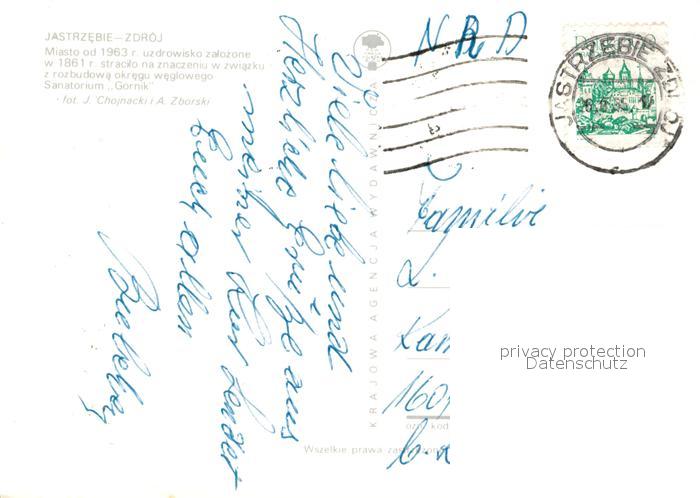 JASTRZĘBIE—ZDRÓJ
Miasto od 1963 r. uzdrowisko założone
w 1861 r. straciło na znaczeniu w związku
z rozbudową okręgu węglowego
Sanatorium „Górnik"
fot. J. Chojnacki i A. Zborski
Viele liebe und
Herzliche Grüße aus
meiner Kur sendet
Euch allen
KRAJOWA AGENCJA WYDAWNICZA
Wszelkie prawa zastrzeżone
NRD
JASTRZĘBIE ZDRÓJ
Familie
L.
Kam
160
ozn. kod
privacy protection
Datenschutz